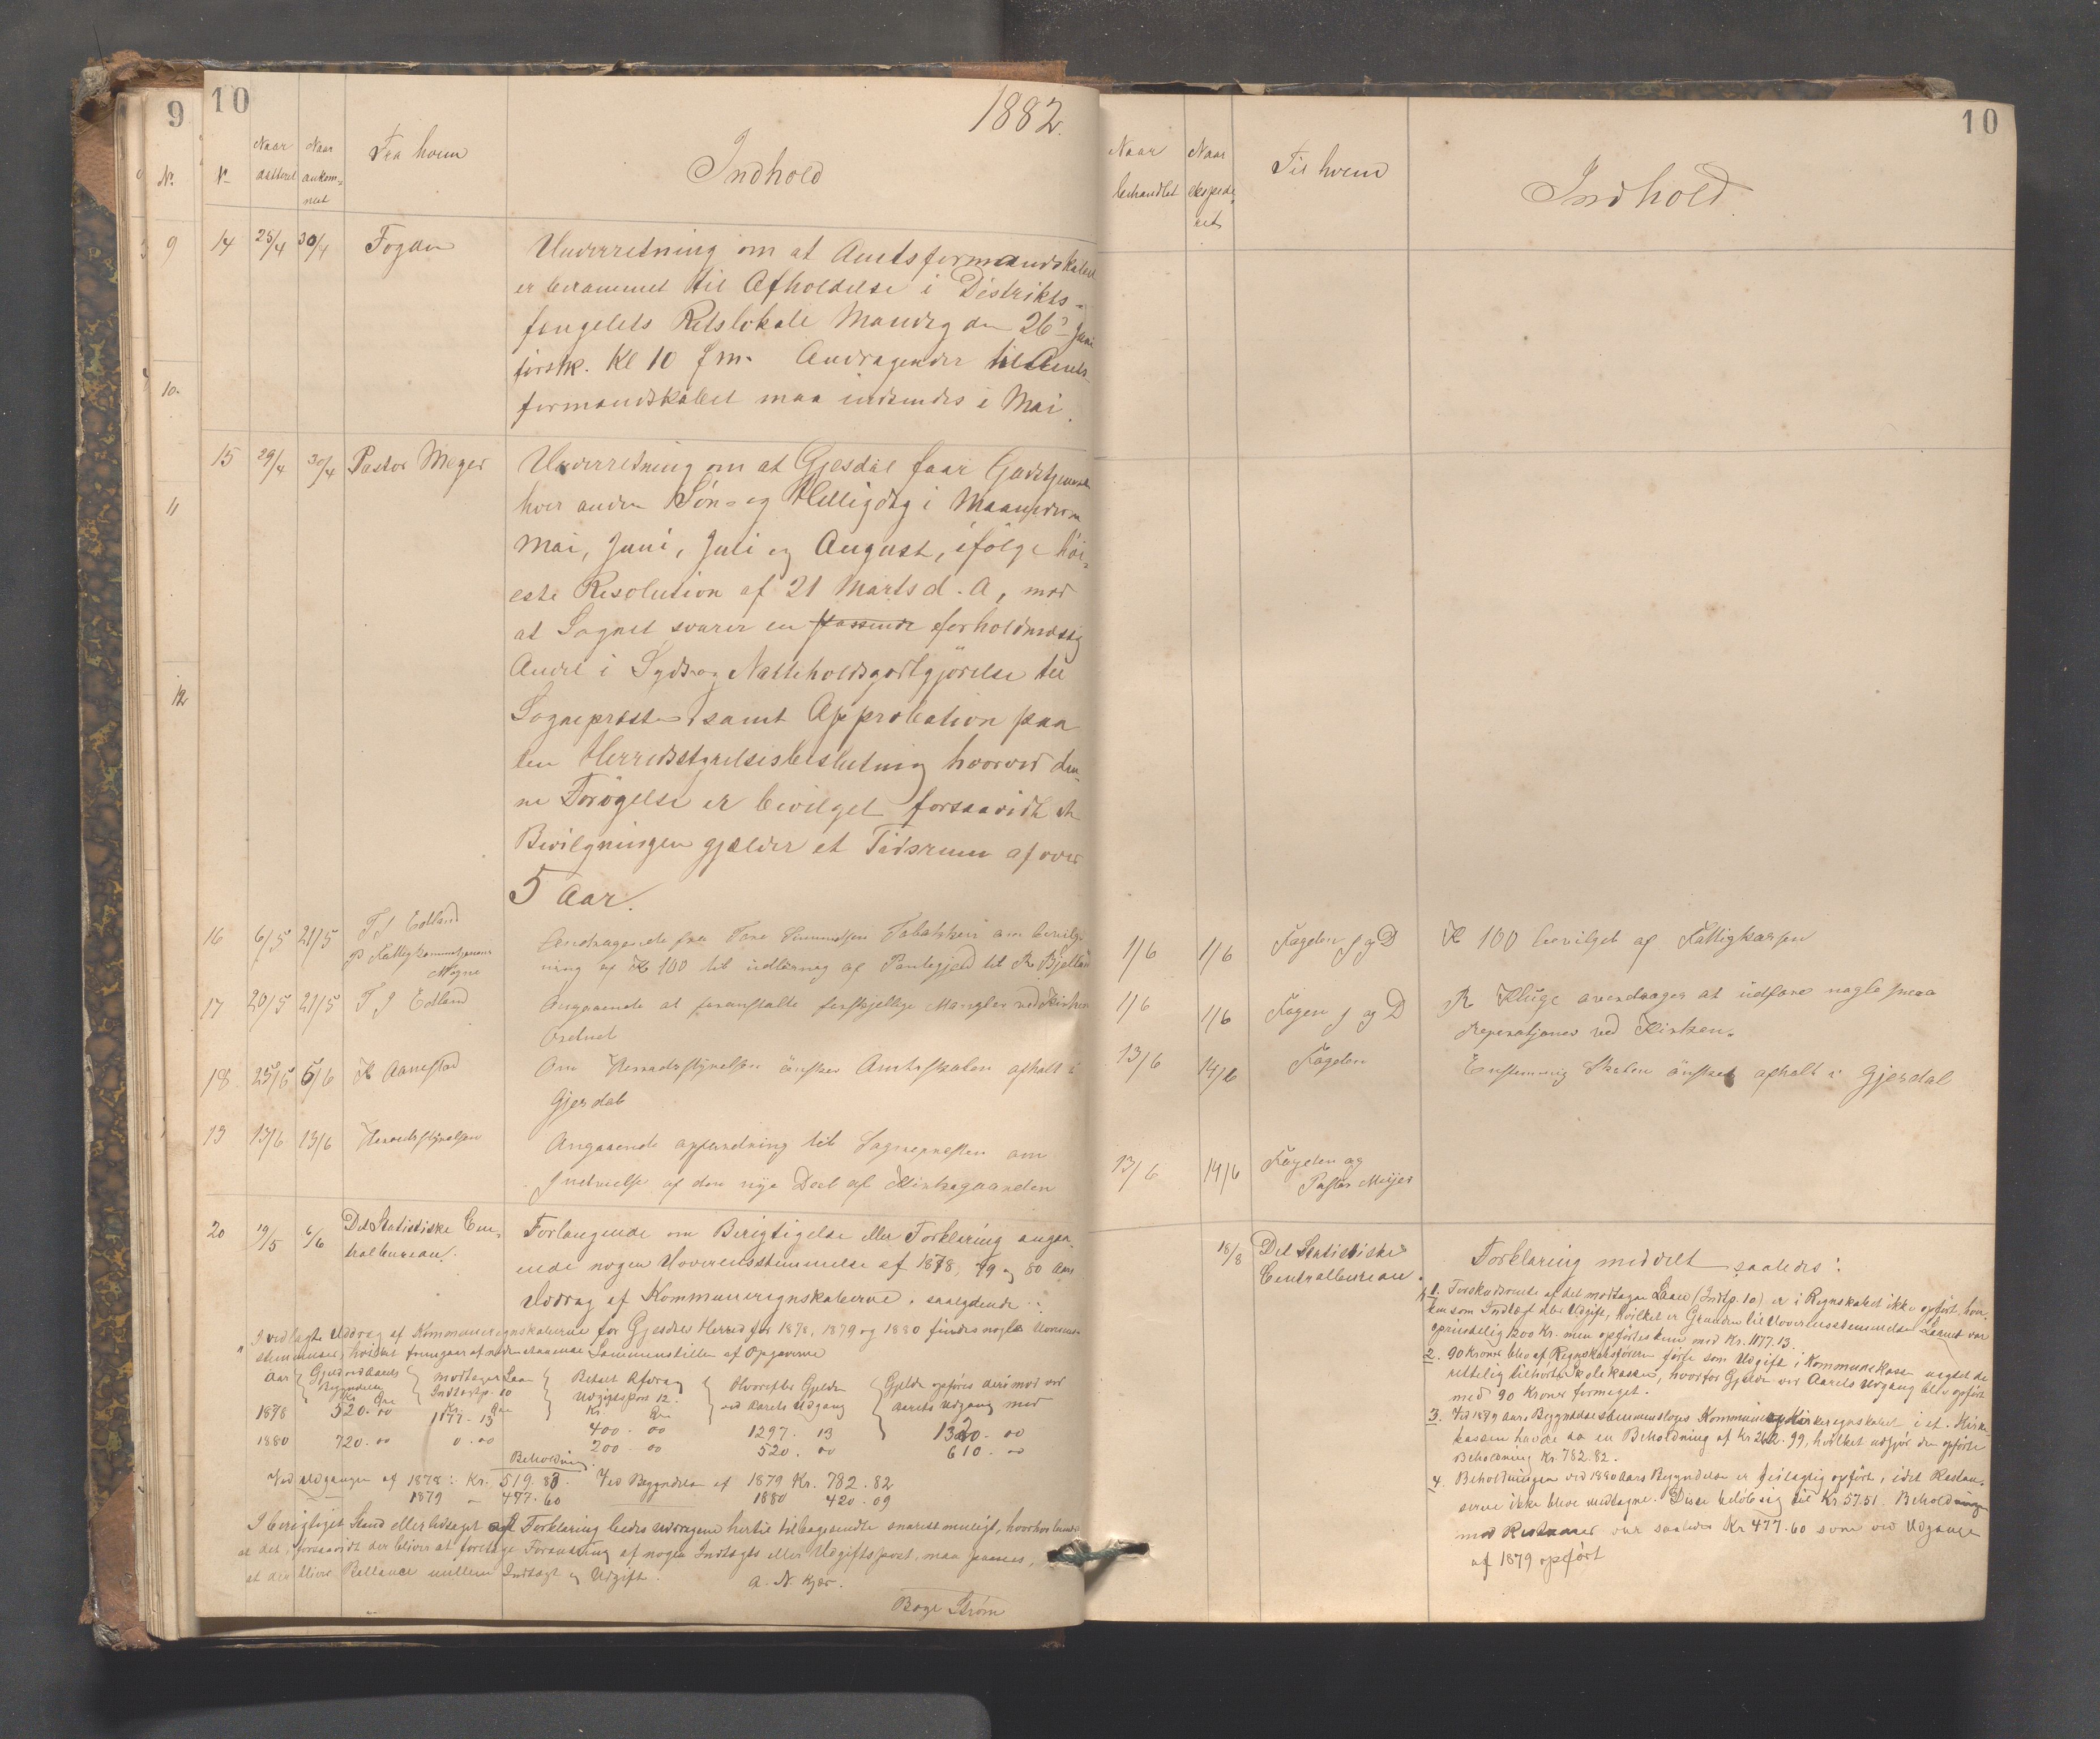 9
No.
9
10.
11
12
10
1882.
No
Naar dateret
Naar ankommet
Fra hvem
Indhold
14 25/4 30/4 Fogden
Underretning om at Amtsformandskabet
er berammet til Afholdelse i Distrikts-
fengslets Retslokale Mandag den 26de Juni
førstk. Kl 10 fm. Andragender til Amts-
formandskabet maa indsendes i Mai.
15 29/4 30/4 Pastor Meyer
Underretning om at Gjesdal faar Gudstjeneste
hver anden Søn- og Helligdag i Maanederne
Mai, Juni, Juli og August, ifølge høi-
este Resolution af 21 Marts d. A, mod
at Sognet svarer en passende forholdmæssig
Andel i Skyds og Natteholdsgodtgjørelse til
Sognepræsten samt Approbation paa
den Herredsstyrelsesbeslutning hvorved den-
ne Forøgelse er bevilget forsaavidt
Bevilgningen gjælder et Tidsrum af over
5 Aar.
16 6/5 21/5 T J Edland
P Fattigkommisjonens
Møgne
Andragende fra Tore Simonsen Tabakken om bevilg-
ning af Kr 100 til udløsning af Pantegjeld til R Bjelland
17 20/5 21/5 T J Edland
Angaaende at foranstalte forskjellige Mangler ved Kirken
Ordnet
18 25/5 6/6 K Aamestad
Om Herredsstyrelsen ønsker Amtsskatten ophalt i
Gjesdal
19 13/6 13/6 Herredsstyrelsen
Angaaende opfordring til Sognepresten om
Indvielse af den nye Deel af Kirkegaarden
20 19/5 6/6 Det Statistiske Cen-
tralbureau.
Forlangende om Berigtigelse eller Forklaring angaa-
ende nogen Uoverensstemmelse af 1878, 79 og 80 Aars
Uddrag af Kommuneregnskaberne, saalydende:
"I vedlagte Uddrag af Kommuneregnskaberne for Gjesdal Herred for 1878, 1879 og 1880 findes nogle Uoverens-
stemmelser, hvilket fremgaar af nedenstaaende Sammenstillen af Opgaverne
Aar { Gjeld ved Aarets Begyndelse { modtaget Laan Indtægtsp. 10 { Betalt Afdrag Udgiftspost 12. { Hvorefter Gjelden ved Aarets Udgang { Gjelden opføres derimod ved Aarets Udgang med
Kr Øre Kr. Øre Kr Øre
1878 520.00 1177.13 400.00 1297.13 1320.00
1880 720.00 0.00 200.00 520.00 610.00
Beholdning.
Ved Udgangen af 1878: Kr. 519.83. Ved Begyndelsen af 1879 Kr. 782.82
1879 - 477.60 1880 420.09
I berigtiget Stand eller ledsaget af Forklaring bedes Uddragene hertil tilbagesendte snarest muligt, hvorhos
at det, forsaavidt der bliver at foretage Forandring af nogen Indtægts eller Udgiftspost, maa passes,
at der bliver Ballance mellem Indtægt og Udgift.
A. N. Kjær.
Boye Strøm
10
Naar behandlet
Naar ekspederet
Til hvem
Indhold.
1/6 1/6 Fogden J og D Kr 100 bevilget af Fattigkassen
1/6 1/6 Fogen J og D R Kluge overdrages at udføre nogle smaa
Reperatjoner ved Kirken.
13/6 14/6 Fogden Enstemmig Skatten ønsket ophalt i Gjesdal
13/6 14/6 Fogden og
Pastor Meijer
18/8 Det Statistiske
Centralbureau.
Forklaring meddelt saaledes:
1. Forskudsrente af det modtagne Laan (Indtp. 10) er i Regnskabet ikke opført, hver-
ken som Indtægt eller Udgift, hvilket er Grunden til Uoverensstemmelsen Laanet var
oprindelig 1200 Kr. men opførtes kun med Kr. 1177.13.
2. 90 Kroner blev af Regnskabsføreren førte som Udgift i Kommunekassen uagtet de
rettelig tilhørte Skolekassen, hvorfor Gjelden ved Aarets Udgang blev opført
med 90 Kroner formeget.
3. Ved 1879 Aars Begyndelse sammensloges Kommune og Kirkeregnskabet i et. Kirke-
kassen havde da en Beholdning af Kr 262.99, hvilket udgjør den opførte
Beholdning Kr. 782.82.
4. Beholdningen ved 1880 Aars Begyndelse er feilagtig opført, idet Restan-
serne ikke bleve medtagne. Disse beløb sig til Kr. 57.51. Beholdningen
med Restancer var saaledes Kr 477.60 som ved Udgangen
af 1879 opført